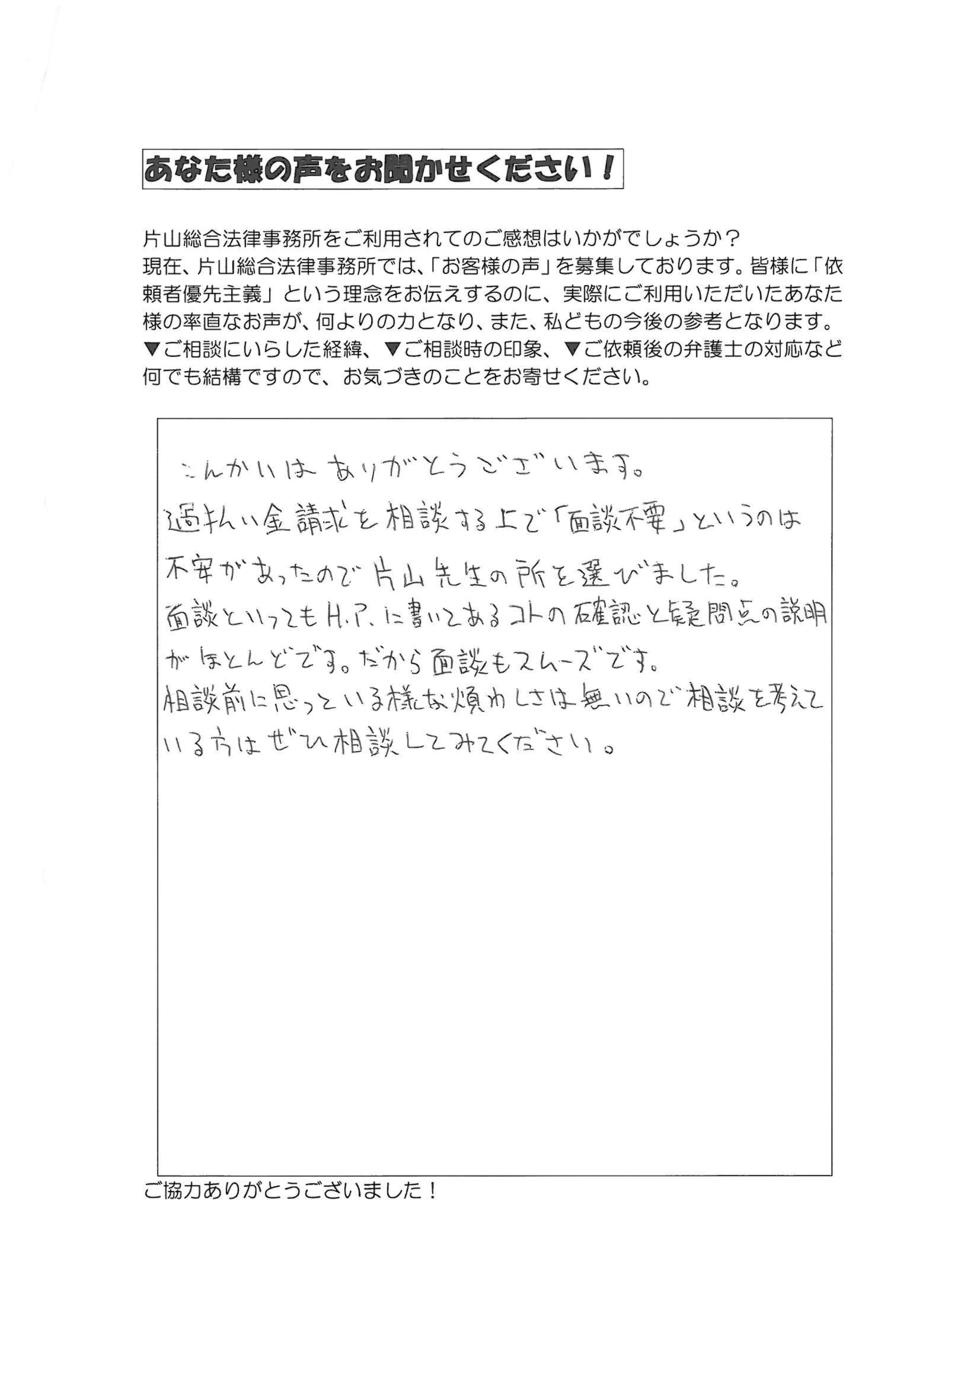 あなた様の声をお聞かせください!
片山総合法律事務所をご利用されてのご感想はいかがでしょうか?
現在、片山総合法律事務所では、「お客様の声」を募集しております。皆様に「依
頼者優先主義」という理念をお伝えするのに、実際にご利用いただいたあなた
様の率直なお声が、何よりの力となり、また、私どもの今後の参考となります。
▼ご相談にいらした経緯、▼ご相談時の印象、▼ご依頼後の弁護士の対応など
何でも結構ですので、お気づきのことをお寄せください。
こんかいは ありがとうございます。
過払い金請求を相談する上で「面談不要」というのは
不安があったので片山先生の所を選びました。
面談といってもH.P.に書いてあるコトの確認と疑問点の説明
がほとんどです。だから面談もスムーズです。
相談前に思っている様な煩わしさは無いので相談を考えて
いる方はぜひ相談してみてください。
ご協力ありがとうございました!